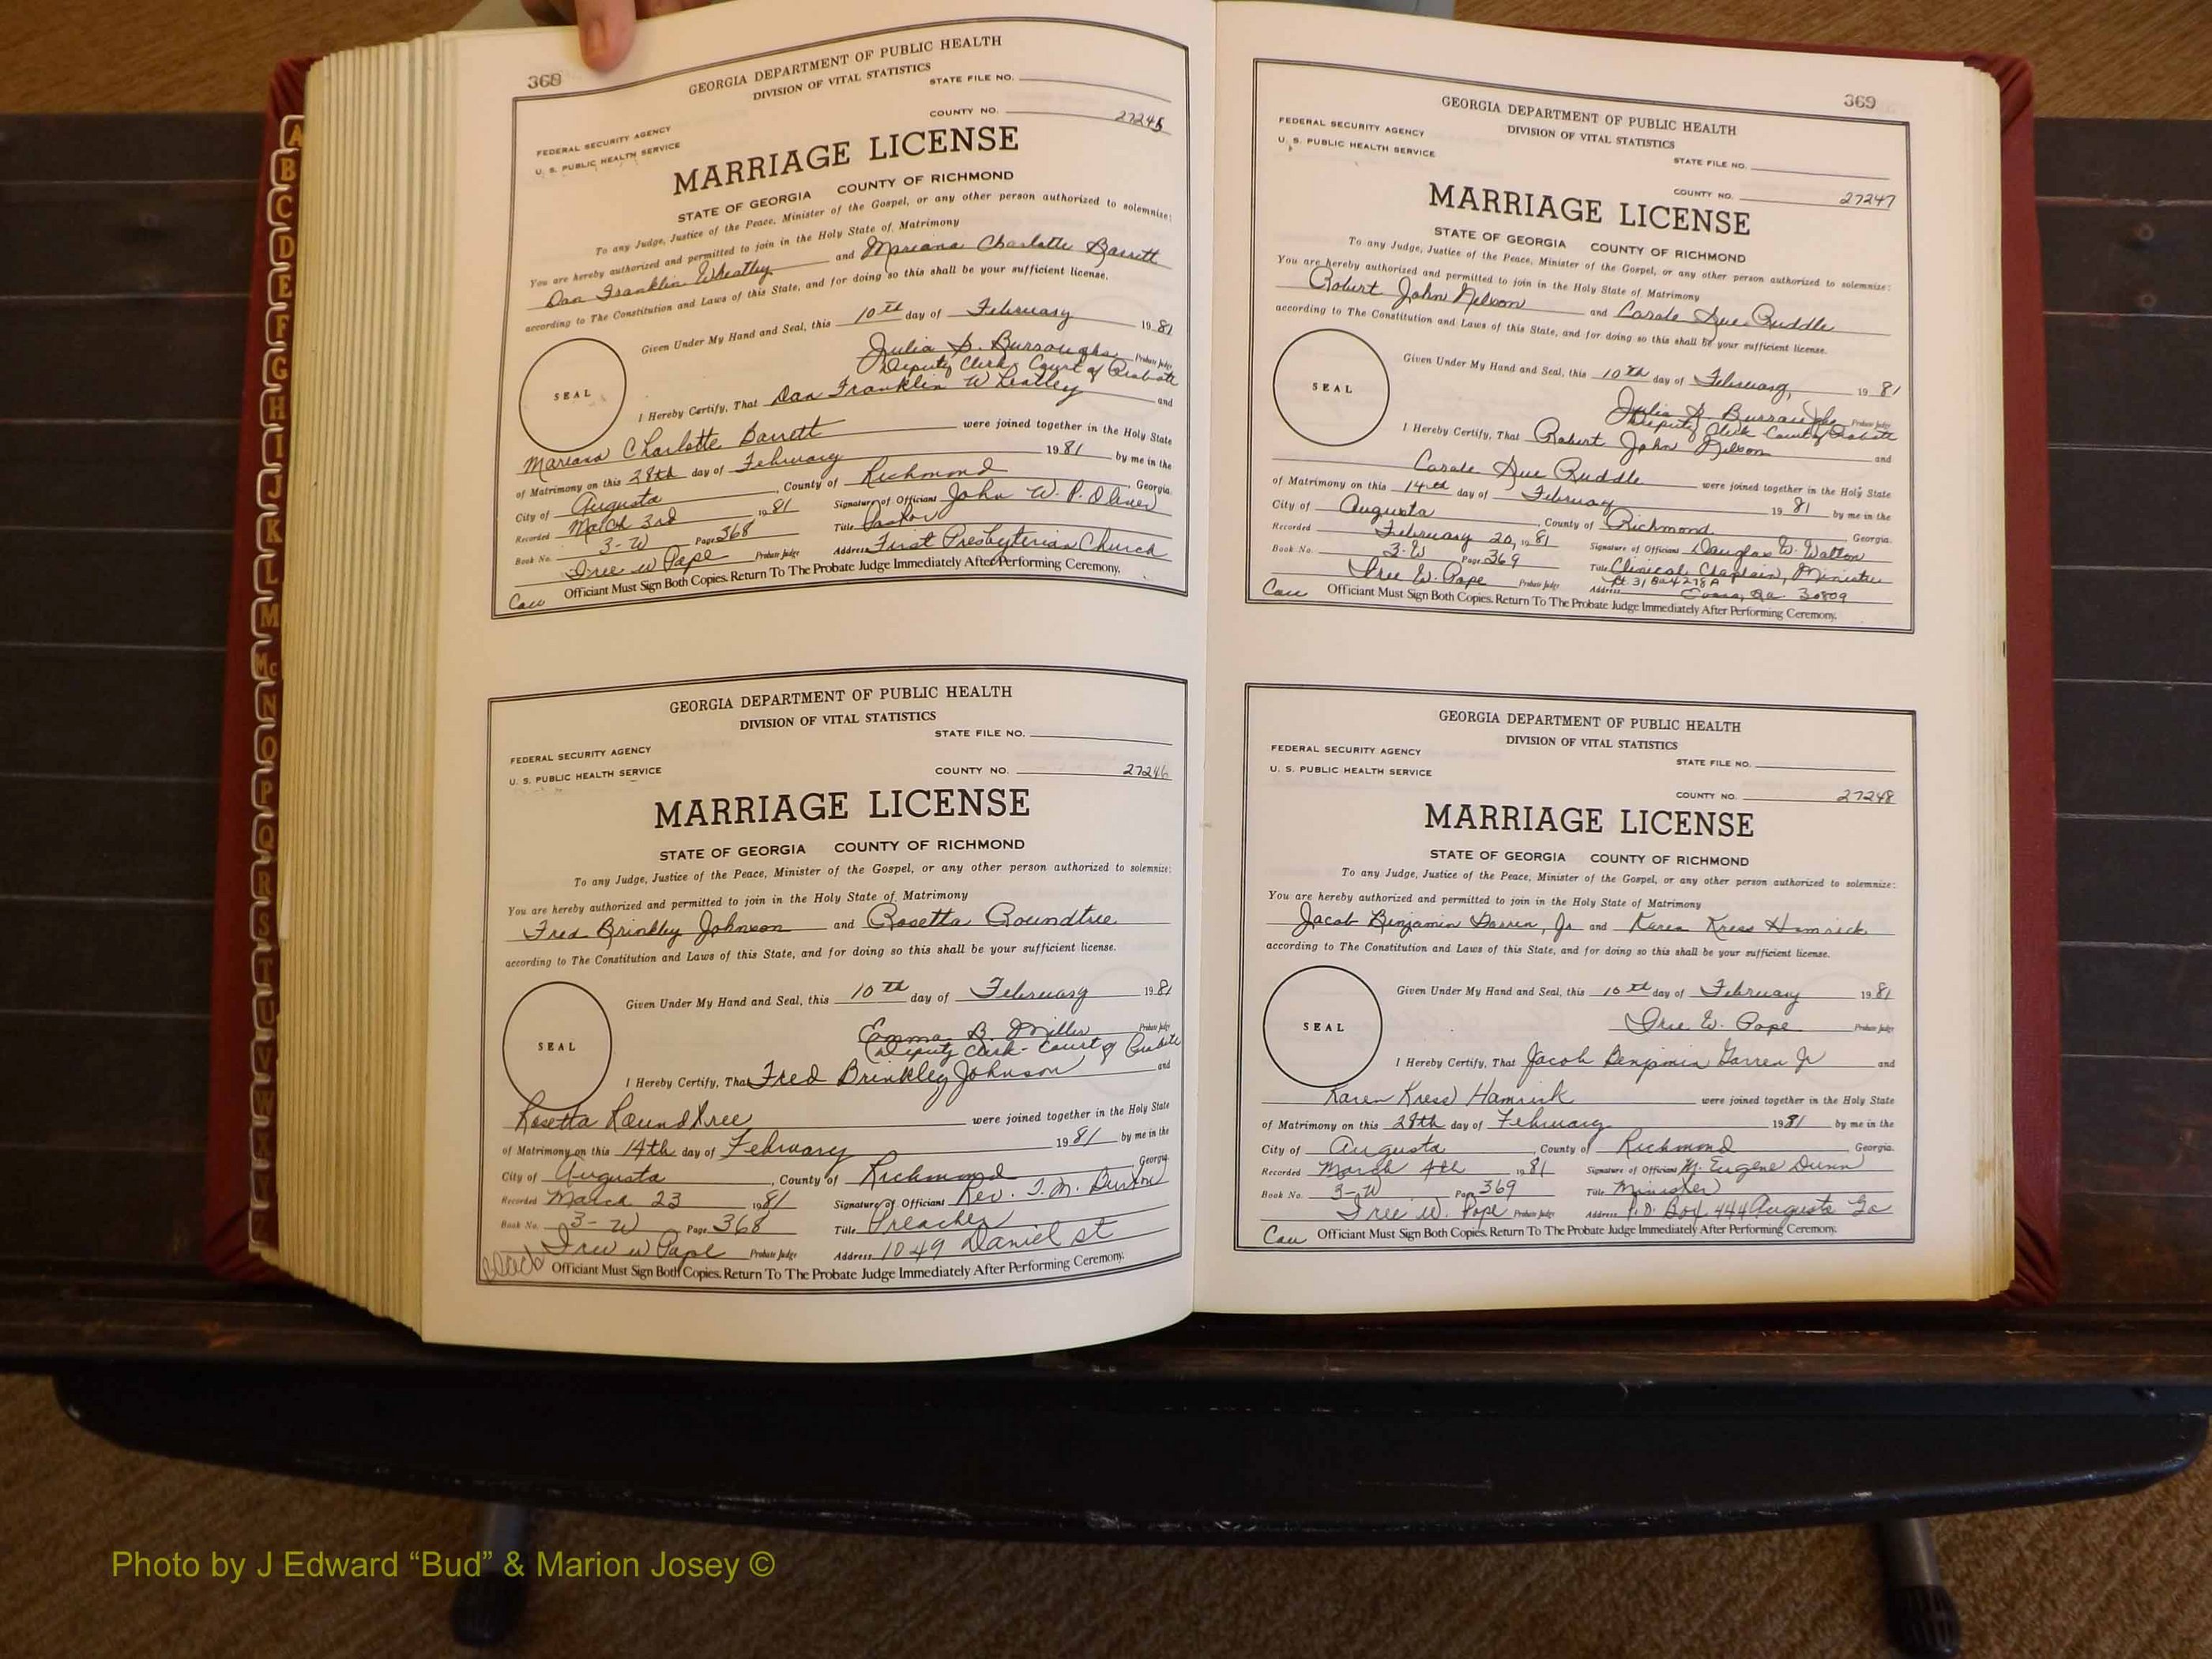 368
GEORGIA DEPARTMENT OF PUBLIC HEALTH
DIVISION OF VITAL STATISTICS
STATE FILE NO.
COUNTY NO. 27245
FEDERAL SECURITY AGENCY
U. S. PUBLIC HEALTH SERVICE
MARRIAGE LICENSE
STATE OF GEORGIA COUNTY OF RICHMOND
To any Judge, Justice of the Peace, Minister of the Gospel, or any other person authorized to solemnize:
You are hereby authorized and permitted to join in the Holy State of Matrimony
Dan Franklin Wheatley and Mariana Charlotte Barrett
according to The Constitution and Laws of this State, and for doing so this shall be your sufficient license.
Given Under My Hand and Seal, this 10th day of February 1981
Julia S. Burroughs Probate Judge
Deputy Clerk Court of Probate
SEAL
I Hereby Certify, That Dan Franklin Wheatley and
Mariana Charlotte Barrett were joined together in the Holy State
of Matrimony on this 28th day of February 1981 by me in the
City of Augusta, County of Richmond, Georgia.
Recorded March 3rd 1981 Signature of Officiant John W. P. Oliver
Book No. 3-W Page 368 Title Pastor
Iree W Pope Probate Judge Address First Presbyterian Church
Cau Officiant Must Sign Both Copies. Return To The Probate Judge Immediately After Performing Ceremony.
GEORGIA DEPARTMENT OF PUBLIC HEALTH
DIVISION OF VITAL STATISTICS
STATE FILE NO.
FEDERAL SECURITY AGENCY
U. S. PUBLIC HEALTH SERVICE
COUNTY NO. 27246
MARRIAGE LICENSE
STATE OF GEORGIA COUNTY OF RICHMOND
To any Judge, Justice of the Peace, Minister of the Gospel, or any other person authorized to solemnize:
You are hereby authorized and permitted to join in the Holy State of Matrimony
Fred Brinkley Johnson and Rosetta Roundtree
according to The Constitution and Laws of this State, and for doing so this shall be your sufficient license.
Given Under My Hand and Seal, this 10th day of February 1981
Emma B. Miller Probate Judge
Deputy Clerk - Court of Probate
SEAL
I Hereby Certify, That Fred Brinkley Johnson and
Rosetta Roundtree were joined together in the Holy State
of Matrimony on this 14th day of February 1981 by me in the
City of Augusta, County of Richmond Georgia.
Recorded March 23 1981 Signature of Officiant Rev.
Book No. 3-W Page 368 Title Preacher
Iree W Pope Probate Judge Address 1049 Daniel St
Officiant Must Sign Both Copies. Return To The Probate Judge Immediately After Performing Ceremony.
369
GEORGIA DEPARTMENT OF PUBLIC HEALTH
DIVISION OF VITAL STATISTICS
FEDERAL SECURITY AGENCY
U. S. PUBLIC HEALTH SERVICE
STATE FILE NO.
COUNTY NO. 27247
MARRIAGE LICENSE
STATE OF GEORGIA COUNTY OF RICHMOND
To any Judge, Justice of the Peace, Minister of the Gospel, or any other person authorized to solemnize:
You are hereby authorized and permitted to join in the Holy State of Matrimony
Robert John Nelson and Carole Sue Ruddle
according to The Constitution and Laws of this State, and for doing so this shall be your sufficient license.
Given Under My Hand and Seal, this 10th day of February, 1981
Julia S. Burroughs Probate Judge
Deputy Clerk Court of Probate
SEAL
I Hereby Certify, That Robert John Nelson and
Carole Sue Ruddle were joined together in the Holy State
of Matrimony on this 14th day of February 1981 by me in the
City of Augusta, County of Richmond Georgia.
Recorded February 20, 1981 Signature of Officiant Douglas W. Walton
Book No. 3-W Page 369 Title Clinical Chaplain, Minister
Iree W. Pope Probate Judge Address Rt. 3, Box 278A
Evans, Ga. 30809
Cau Officiant Must Sign Both Copies. Return To The Probate Judge Immediately After Performing Ceremony.
GEORGIA DEPARTMENT OF PUBLIC HEALTH
DIVISION OF VITAL STATISTICS
FEDERAL SECURITY AGENCY
U. S. PUBLIC HEALTH SERVICE
STATE FILE NO.
COUNTY NO. 27248
MARRIAGE LICENSE
STATE OF GEORGIA COUNTY OF RICHMOND
To any Judge, Justice of the Peace, Minister of the Gospel, or any other person authorized to solemnize:
You are hereby authorized and permitted to join in the Holy State of Matrimony
Jacob Benjamin Garren, Jr and Karen Kress Hamrick
according to The Constitution and Laws of this State, and for doing so this shall be your sufficient license.
Given Under My Hand and Seal, this 10th day of February 1981
Iree W. Pope Probate Judge
SEAL
I Hereby Certify, That Jacob Benjamin Garren Jr and
Karen Kress Hamrick were joined together in the Holy State
of Matrimony on this 28th day of February 1981 by me in the
City of Augusta, County of Richmond Georgia.
Recorded March 4th 1981 Signature of Officiant M. Eugene Dunn
Book No. 3-W Page 369 Title Minister
Iree W. Pope Probate Judge Address P.O. Box 444 Augusta Ga
Cau Officiant Must Sign Both Copies. Return To The Probate Judge Immediately After Performing Ceremony.
A
B
C
D
E
F
G
H
I
J
K
L
M
Mc
N
O
P
Q
R
S
T
U
V
W
Photo by J Edward “Bud” & Marion Josey ©